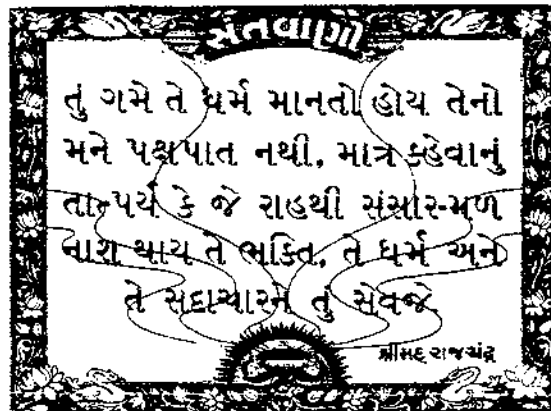 સંતવાણી
તું ગમે તે ધર્મ માનતો હોય તેનો
મને પક્ષપાત નથી, માત્ર ક્હેવાનું
તાત્પર્ય કે જે રાહથી સંસાર-મળ
નાશ થાય તે ભક્તિ, તે ધર્મ અને
તે સદાચારને તું સેવજે.
શ્રીમદ્ રાજચંદ્ર